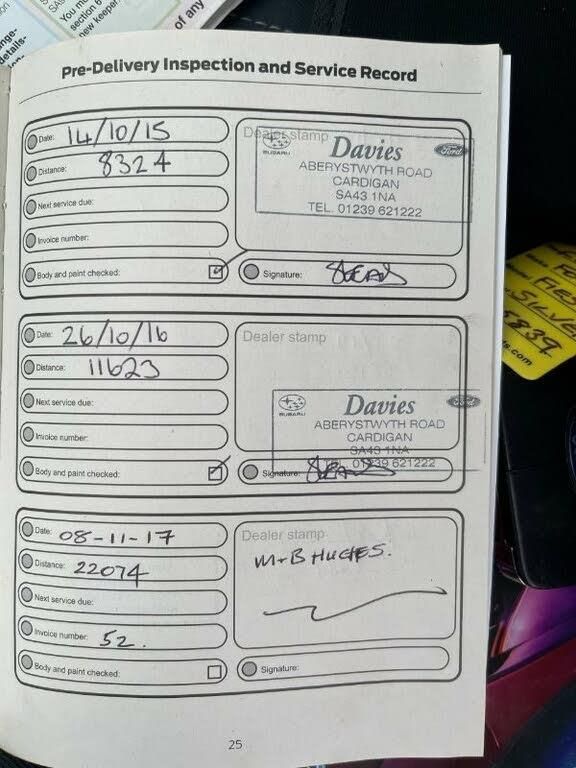 SAS
You mu
section 6
new keeper
of any
nge-
details-
Pre-Delivery Inspection and Service Record
Date: 14/10/15
Distance: 8324
Next service due:
Invoice number:
Body and paint checked:
Dealer stamp
SUBARU
Davies
Ford
ABERYSTWYTH ROAD
CARDIGAN
SA43 1NA
TEL. 01239 621222
Signature:
Date: 26/10/16
Distance: 11623
Next service due:
Invoice number:
Body and paint checked:
Dealer stamp
SUBARU
Davies
Ford
ABERYSTWYTH ROAD
CARDIGAN
SA43 1NA
TEL. 01239 621222
Signature:
Date: 08-11-17
Distance: 22074
Next service due:
Invoice number: 52.
Body and paint checked:
Dealer stamp
M+B HUGHES.
Signature:
25
FIES
SILVE
5839
ts.com